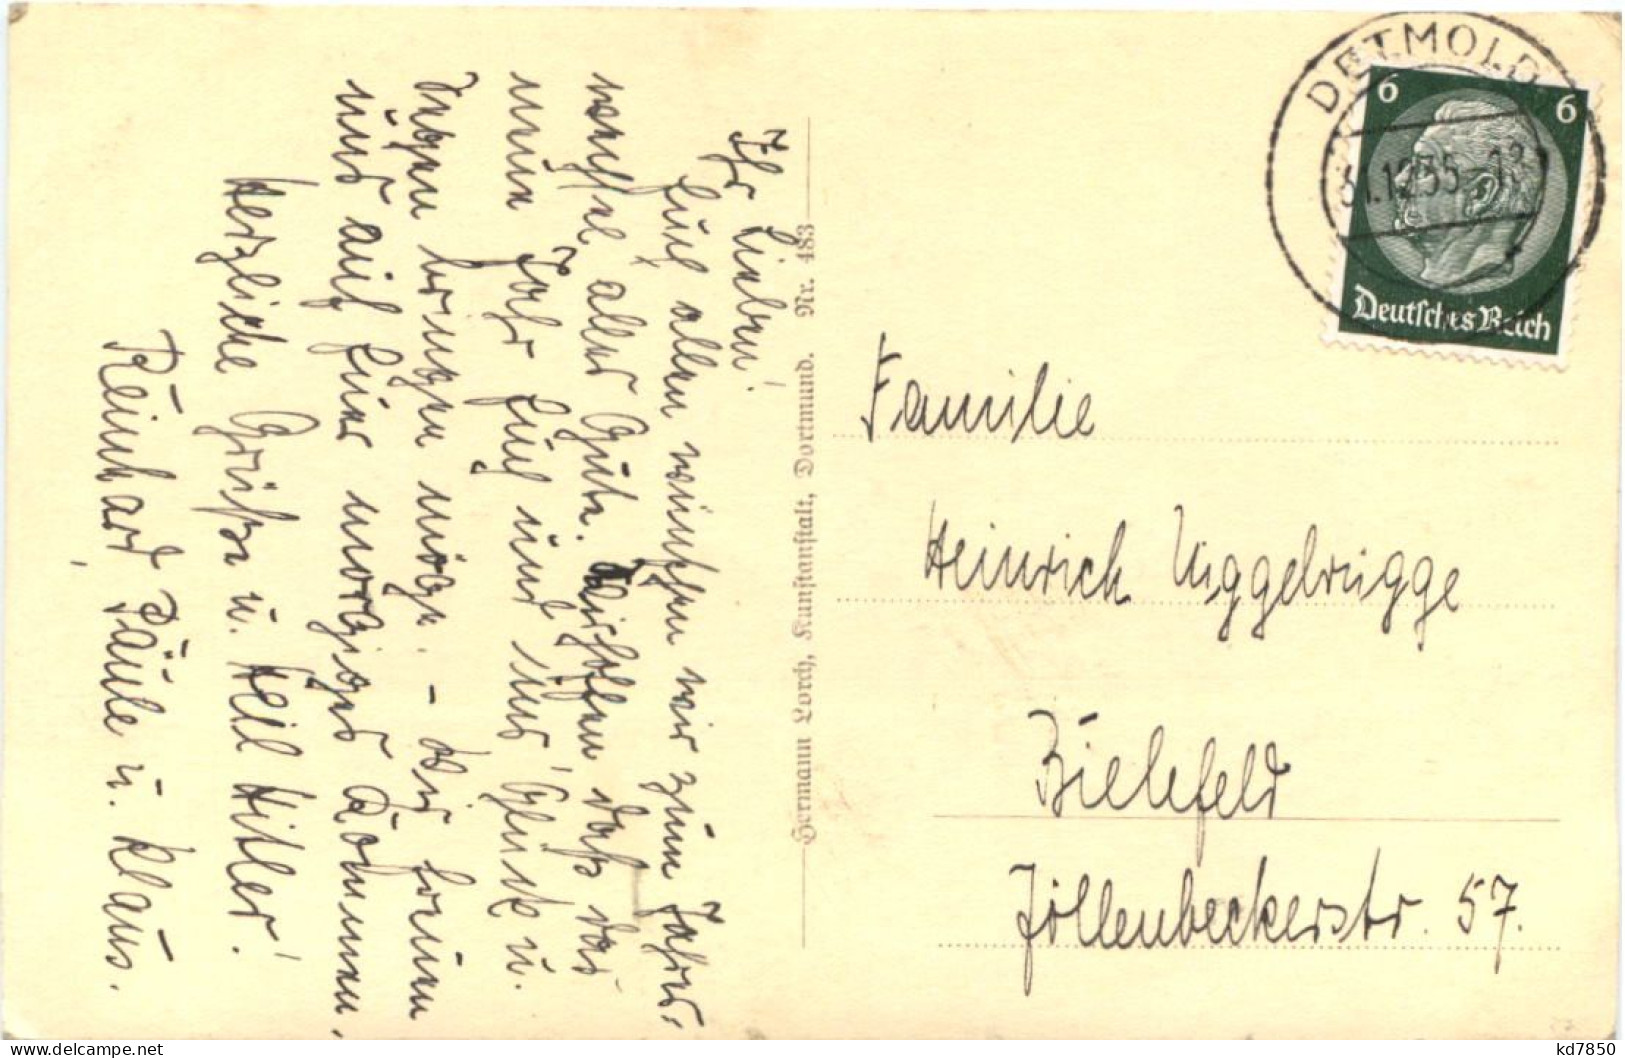 Ihr Lieben!
Euch allen wünschen wir zum Jahres-
wechsel alles Gute. Wir hoffen daß das
neue Jahr Euch und uns Glück u.
Segen bringen möge. – Wir freuen
uns auf Euer morgiges Kommen.
Herzliche Grüße u. Heil Hitler!
Reinhard, Paule u. Klaus.
Hermann Lorch, Kunstanstalt, Dortmund. Nr. 483
DETMOLD
31.12.35
6 6
Deutsches Reich
Familie
Heinrich Niggebrügge
Bielefeld
Jöllenbeckerstr. 57.
www.delcampe.net
kd7850